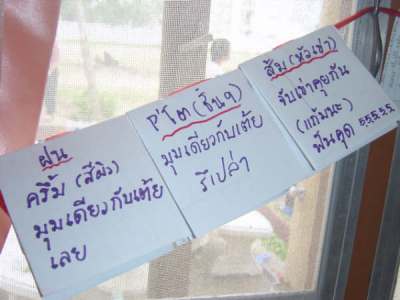 ฝน
ครึ้ม (สีผิว)
มุมเดียวกับเต้ย
เลย
P'โต (ชั้น ๆ)
มุมเดียวกับเต้ย
รึเปล่า
ส้ม (หัวเข่า)
จับเข่าคุยกัน
(แก้มนะ)
ฟันคุด 55555